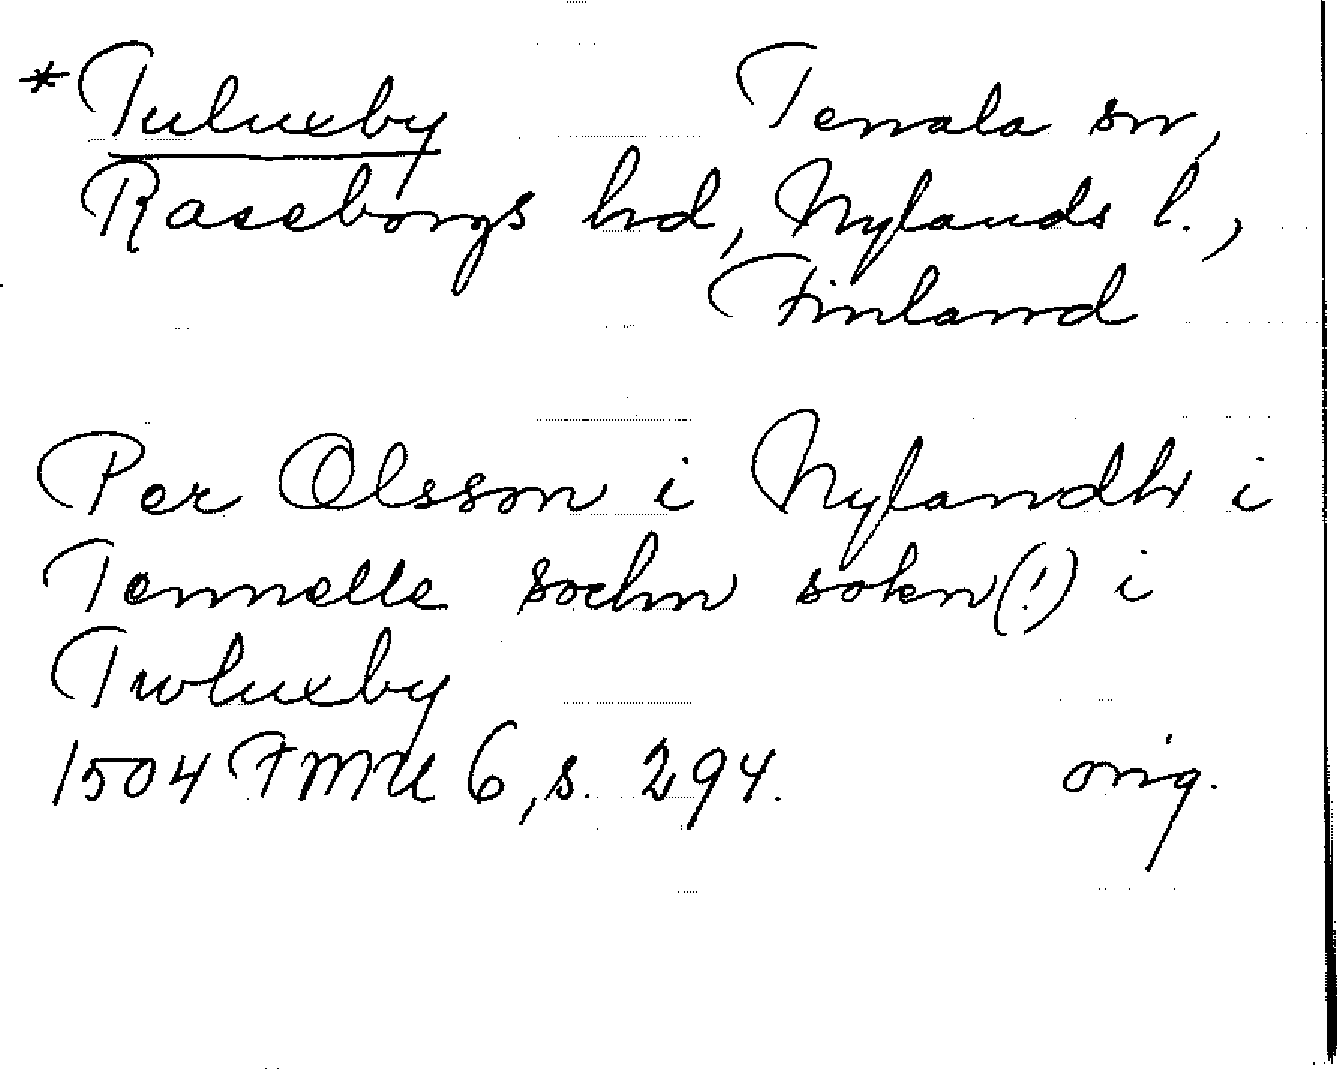 *Tuluxby Tenala sn,
Raseborgs hd, Nylands l.,
Finland
Per Olsson i Nylandh i
Tennelle sochn sokn(!) i
Twluxby
1504 FMU 6, s. 294. orig.